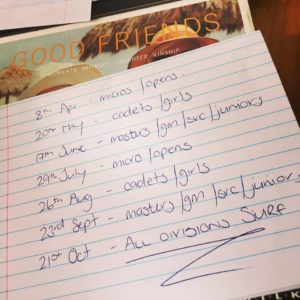 GOOD FRIENDS
MOMENTS INTIMACY LAUGHTER KINSHIP
8th Apr - micros/opens.
20th May - cadets/girls
17th June - masters/gm/src/juniors
29th July - micro/opens
26th Aug - cadets/girls
23rd Sept - masters/gm/src/juniors
21st Oct - ALL DIVISIONS SURF